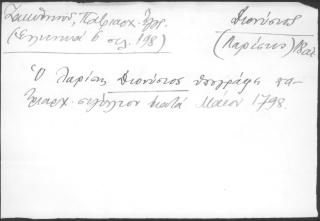 Ζακυθηνός, Πατριαρχ. ἔγγρ.
(Ἑλληνικά 6 σελ. 198)
Διονύσιος
(Λαρίσης)
Ὁ Λαρίσης Διονύσιος ὑπογράφει πα-
τριαρχ. σιγίλλιον κατά Μάϊον 1798.